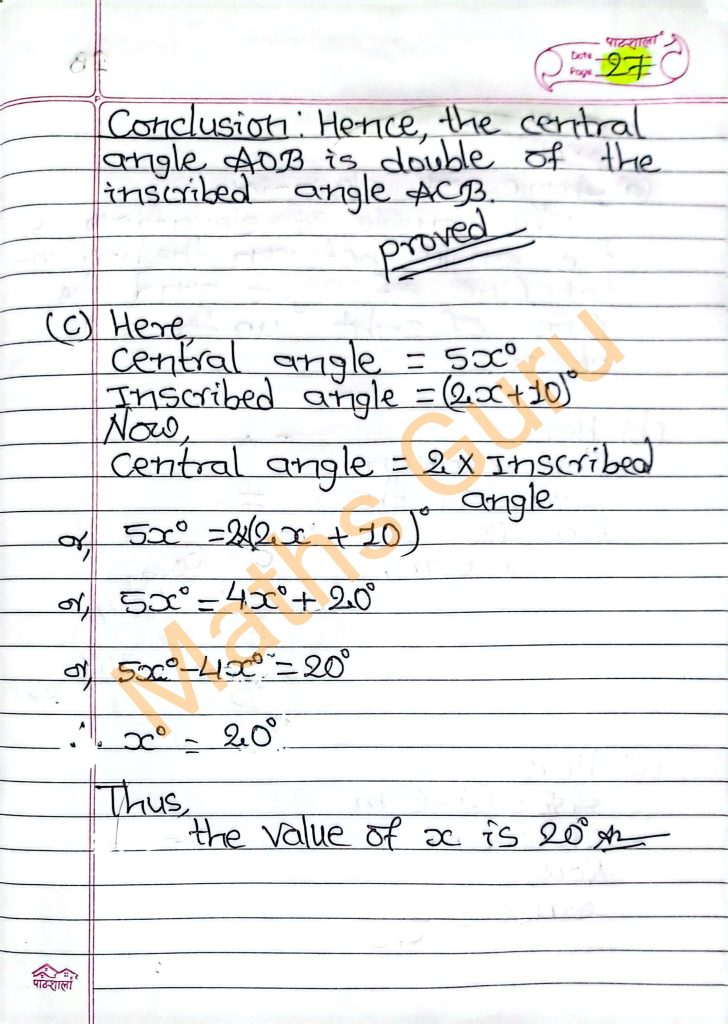 पाठशाला
Date
Page 27
Conclusion: Hence, the central
angle AOB is double of the
inscribed angle ACB.
proved
(C) Here,
Central angle = 5x°
Inscribed angle = (2x+10)°
Now,
Central angle = 2 × Inscribed
angle
or, 5x° = 2×(2x + 10)°
or, 5x° = 4x° + 20°
or, 5x° - 4x° = 20°
∴ x° = 20°
Thus,
the value of x is 20°
Maths Guru
पाठशाला